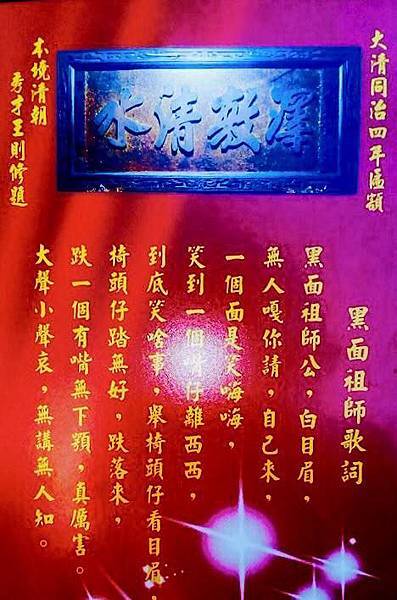 大清同治四年匾額
澤敷清水
本境清朝
秀才王則修題
黑面祖師歌詞
黑面祖師公，白目眉，
無人嘎你請，自己來，
一個面是笑嗨嗨，
笑到一個嘴仔離西西，
到底笑啥事，舉椅頭仔看目眉，
椅頭仔踏無好，跌落來，
跌一個有嘴無下顎，真厲害。
大聲小聲哀，無講無人知。